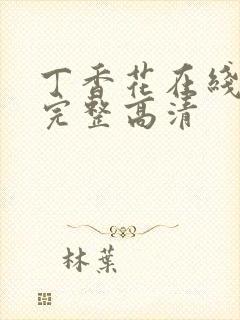 丁香花在綫
完整高清
林葉